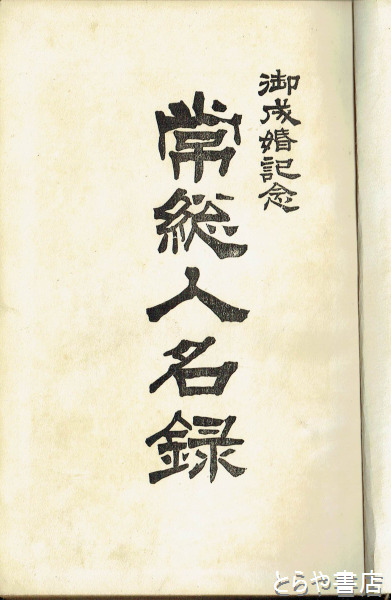 御成婚記念
常総人名録
とらや書店